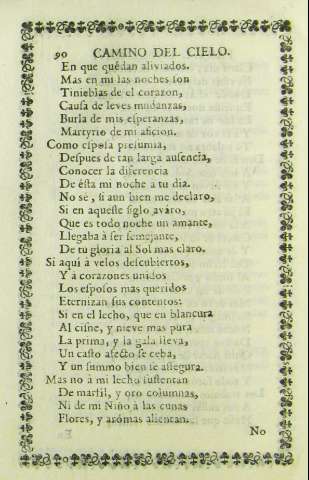 90 CAMINO DEL CIELO.
En que quedan aliviados.
Mas en mi las noches son
Tinieblas de el corazon,
Causa de leves mudanzas,
Burla de mis esperanzas,
Martyrio de mi aficion.
Como esposa presumia,
Despues de tan larga ausencia,
Conocer la diferencia
De ésta mi noche a tu dia.
No sé, si aun bien me declaro,
Si en aqueste siglo avaro,
Que es todo noche un amante,
Llegaba à ser semejante,
De tu gloria al Sol mas claro.
Si aqui à velos descubiertos,
Y à corazones unidos
Los esposos mas queridos
Eternizan sus contentos:
Si en el lecho, que en blancura
Al cisne, y nieve mas pura
La prima, y la gala lleva,
Un casto afecto se ceba,
Y un summo bien se assegura.
Mas no à mi lecho sustentan
De marfil, y oro columnas,
Ni de mi Niño à las cunas
Flores, y arómas alientan.
No